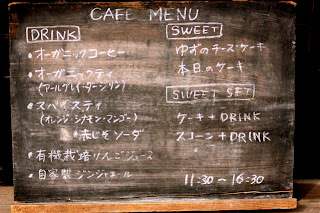 CAFE MENU
DRINK
・オーガニックコーヒー
・オーガニックティ
(アールグレイ・ダージリン)
・スパイスティ
(オレンジ・シナモン・マンゴー)
・赤じそソーダ
・有機栽培りんごジュース
・自家製ジンジャエール
SWEET
ゆずのチーズケーキ
本日のケーキ
SWEET SET
ケーキ+DRINK
スコーン+DRINK
11:30〜16:30